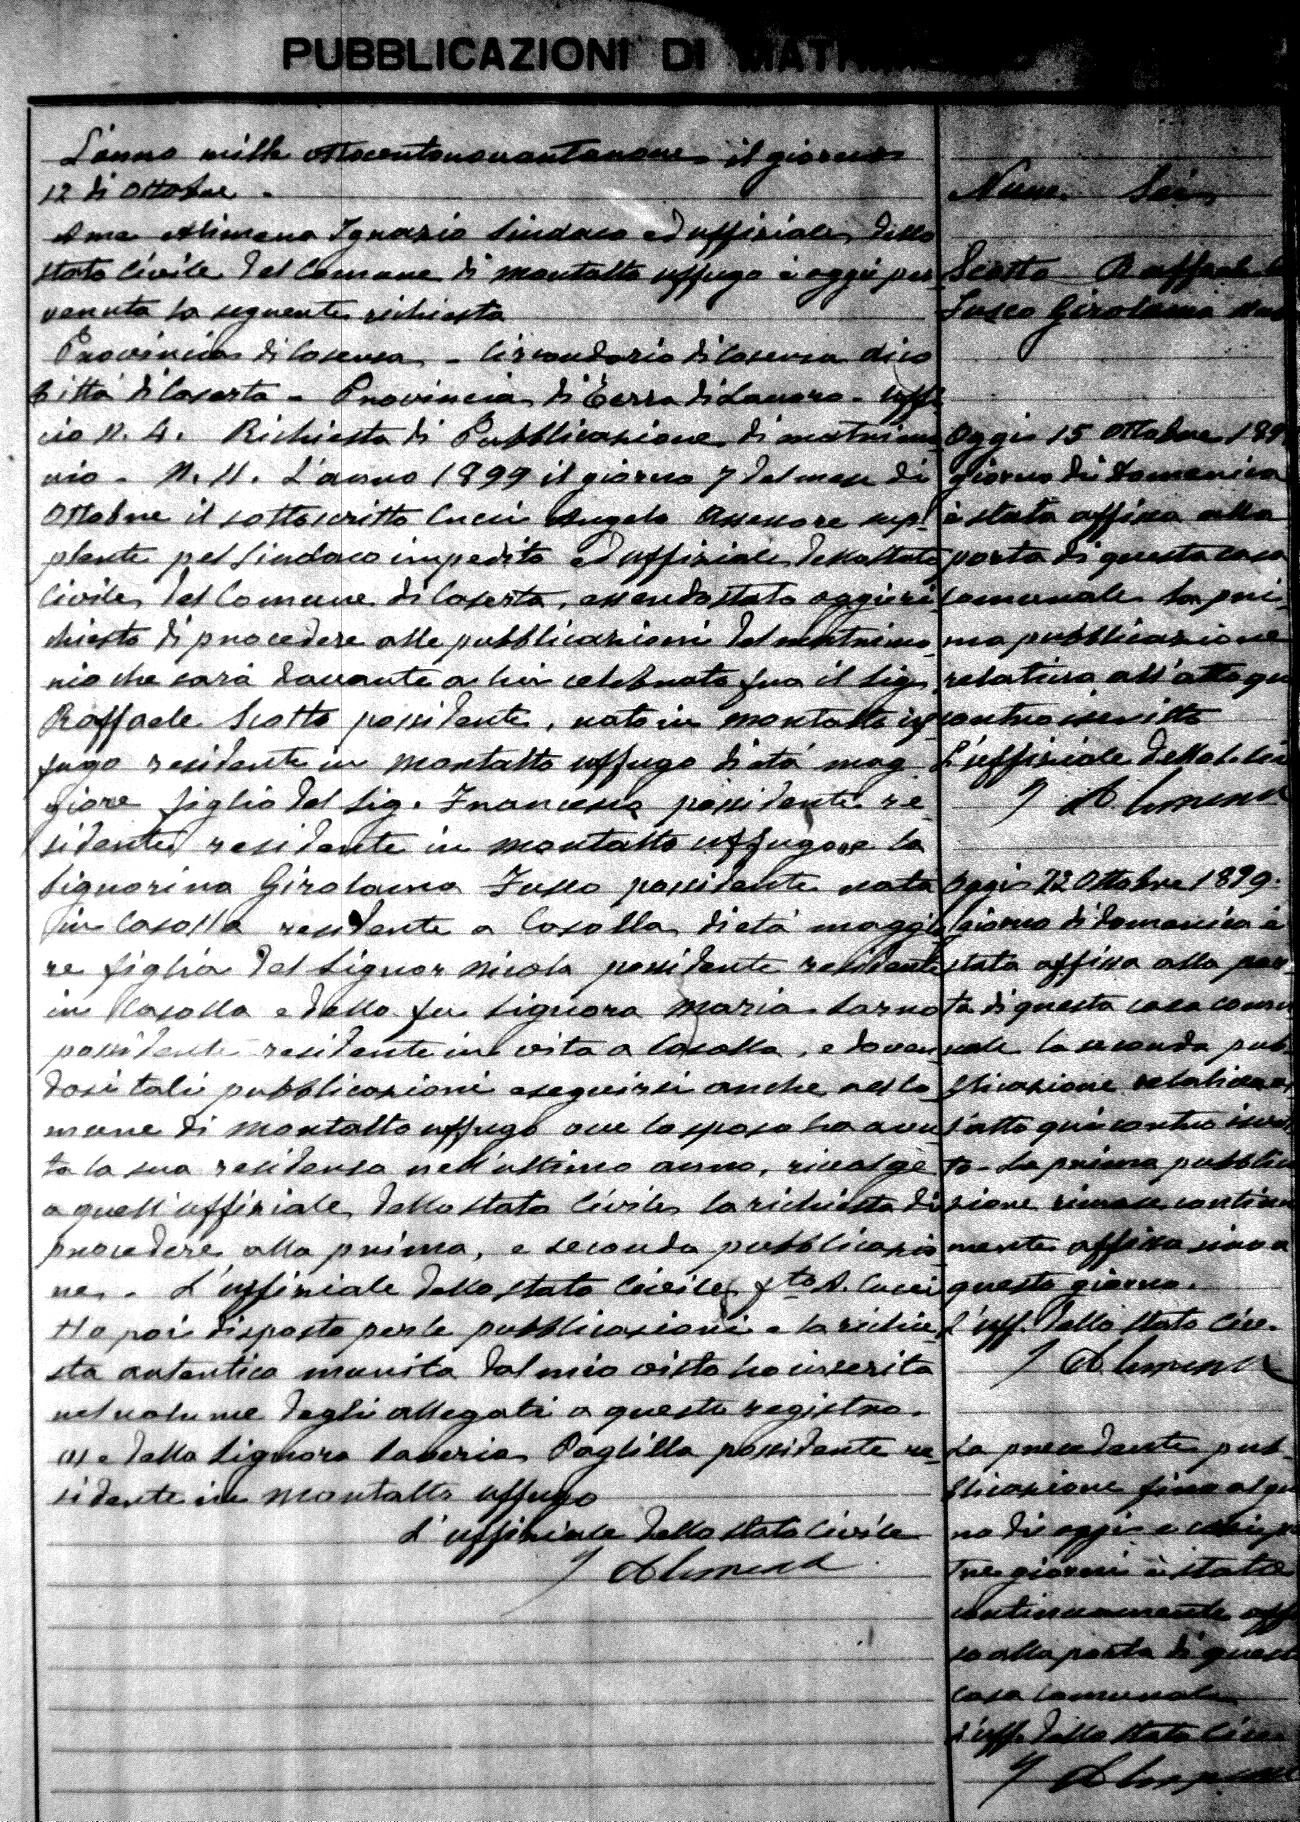 PUBBLICAZIONI DI MATRIMONIO
L'anno mille ottocentonovantanove il giorno
12 di Ottobre.
A me Alimena Ignazio Sindaco ed uffiziale dello
stato Civile del Comune di Montalto Uffugo è oggi per-
venuta la seguente richiesta
Provincia di Cosenza - Circondario di Cosenza dico
Città di Caserta - Provincia di Terra di Lavoro - Uffi
cio N. 4. Richiesta di Pubblicazione di matrimo
nio - N. 11. L'anno 1899 il giorno 7 del mese di
Ottobre il sottoscritto Cucci Angelo Assessore sup-
plente pel Sindaco impedito ed uffiziale dello stato
Civile del Comune di Caserta, essendo stato oggi ri
chiesto di procedere alle pubblicazioni del matrimo-
nio che sarà davante a lui celebrato fra il Sig.
Raffaele Scotto possidente, nato in Montalto Uf
fugo residente in Montalto Uffugo di età mag
giore figlio del Sig. Francesco possidente re
sidente residente in Montalto Uffugo e la
Signorina Girolama Fusco possidente nata
in Casolla residente a Casolla di età maggio
re figlia del Signor Nicola possidente residente
in Casolla e della fu Signora Maria Sarno
possidente residente in vita a Casolla, e doven
dosi tali pubblicazioni eseguirsi anche nel Co
mune di Montalto Uffugo ove lo sposo ha avu
ta la sua residenza nell'ultimo anno, rivolge
a quell'uffiziale dello stato Civile la richiesta di
procedere alla prima, e seconda pubblicazio
ne. L'uffiziale dello stato Civile fto A. Cucci
Ho poi disposto per le pubblicazioni e la richie
sta autentica munita dal mio visto ho inserita
nel volume degli allegati a questo registro.
e della Signora Saveria Paglilla possidente re-
sidente in Montalto Uffugo
L'uffiziale dello stato Civile
I Alimena
Num. Sei
Scotto Raffaele
Fusco Girolama
Oggi 15 Ottobre 189
giorno di Domenica
è stata affissa alla
porta di questa casa
comunale la pri-
ma pubblicazione
relativa all'atto qui
contro iscritto
L'uffiziale dello
I Alimena
Oggi 22 Ottobre 1899.
giorno di domenica è
stata affissa alla por-
ta di questa casa comu
nale la seconda pub-
blicazione relativa al-
l'atto qui contro iscrit
to - La prima pubblica
zione rimase continua
mente affissa sino a
questo giorno.
L'uff. dello stato Civ.
I Alimena
La precedente pub-
blicazione fino al gior
no di oggi e
tre giorni è stata
continuamente affis
sa alla porta di questa
casa Comunale
L'uff. dello stato Civ.
I Alimena